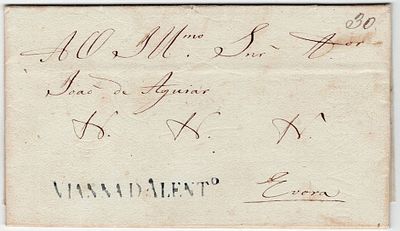 30
AO Illmo. Snr. Dor
João de Aguiar
N. N. N.
VIANNA D ALENTO
Evora